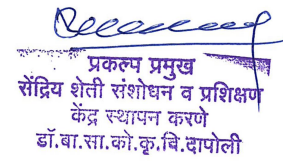 प्रकल्प प्रमुख
सेंद्रिय शेती संशोधन व प्रशिक्षण
केंद्र स्थापन करणे
डॉ.बा.सा.को.कृ.वि.दापोली